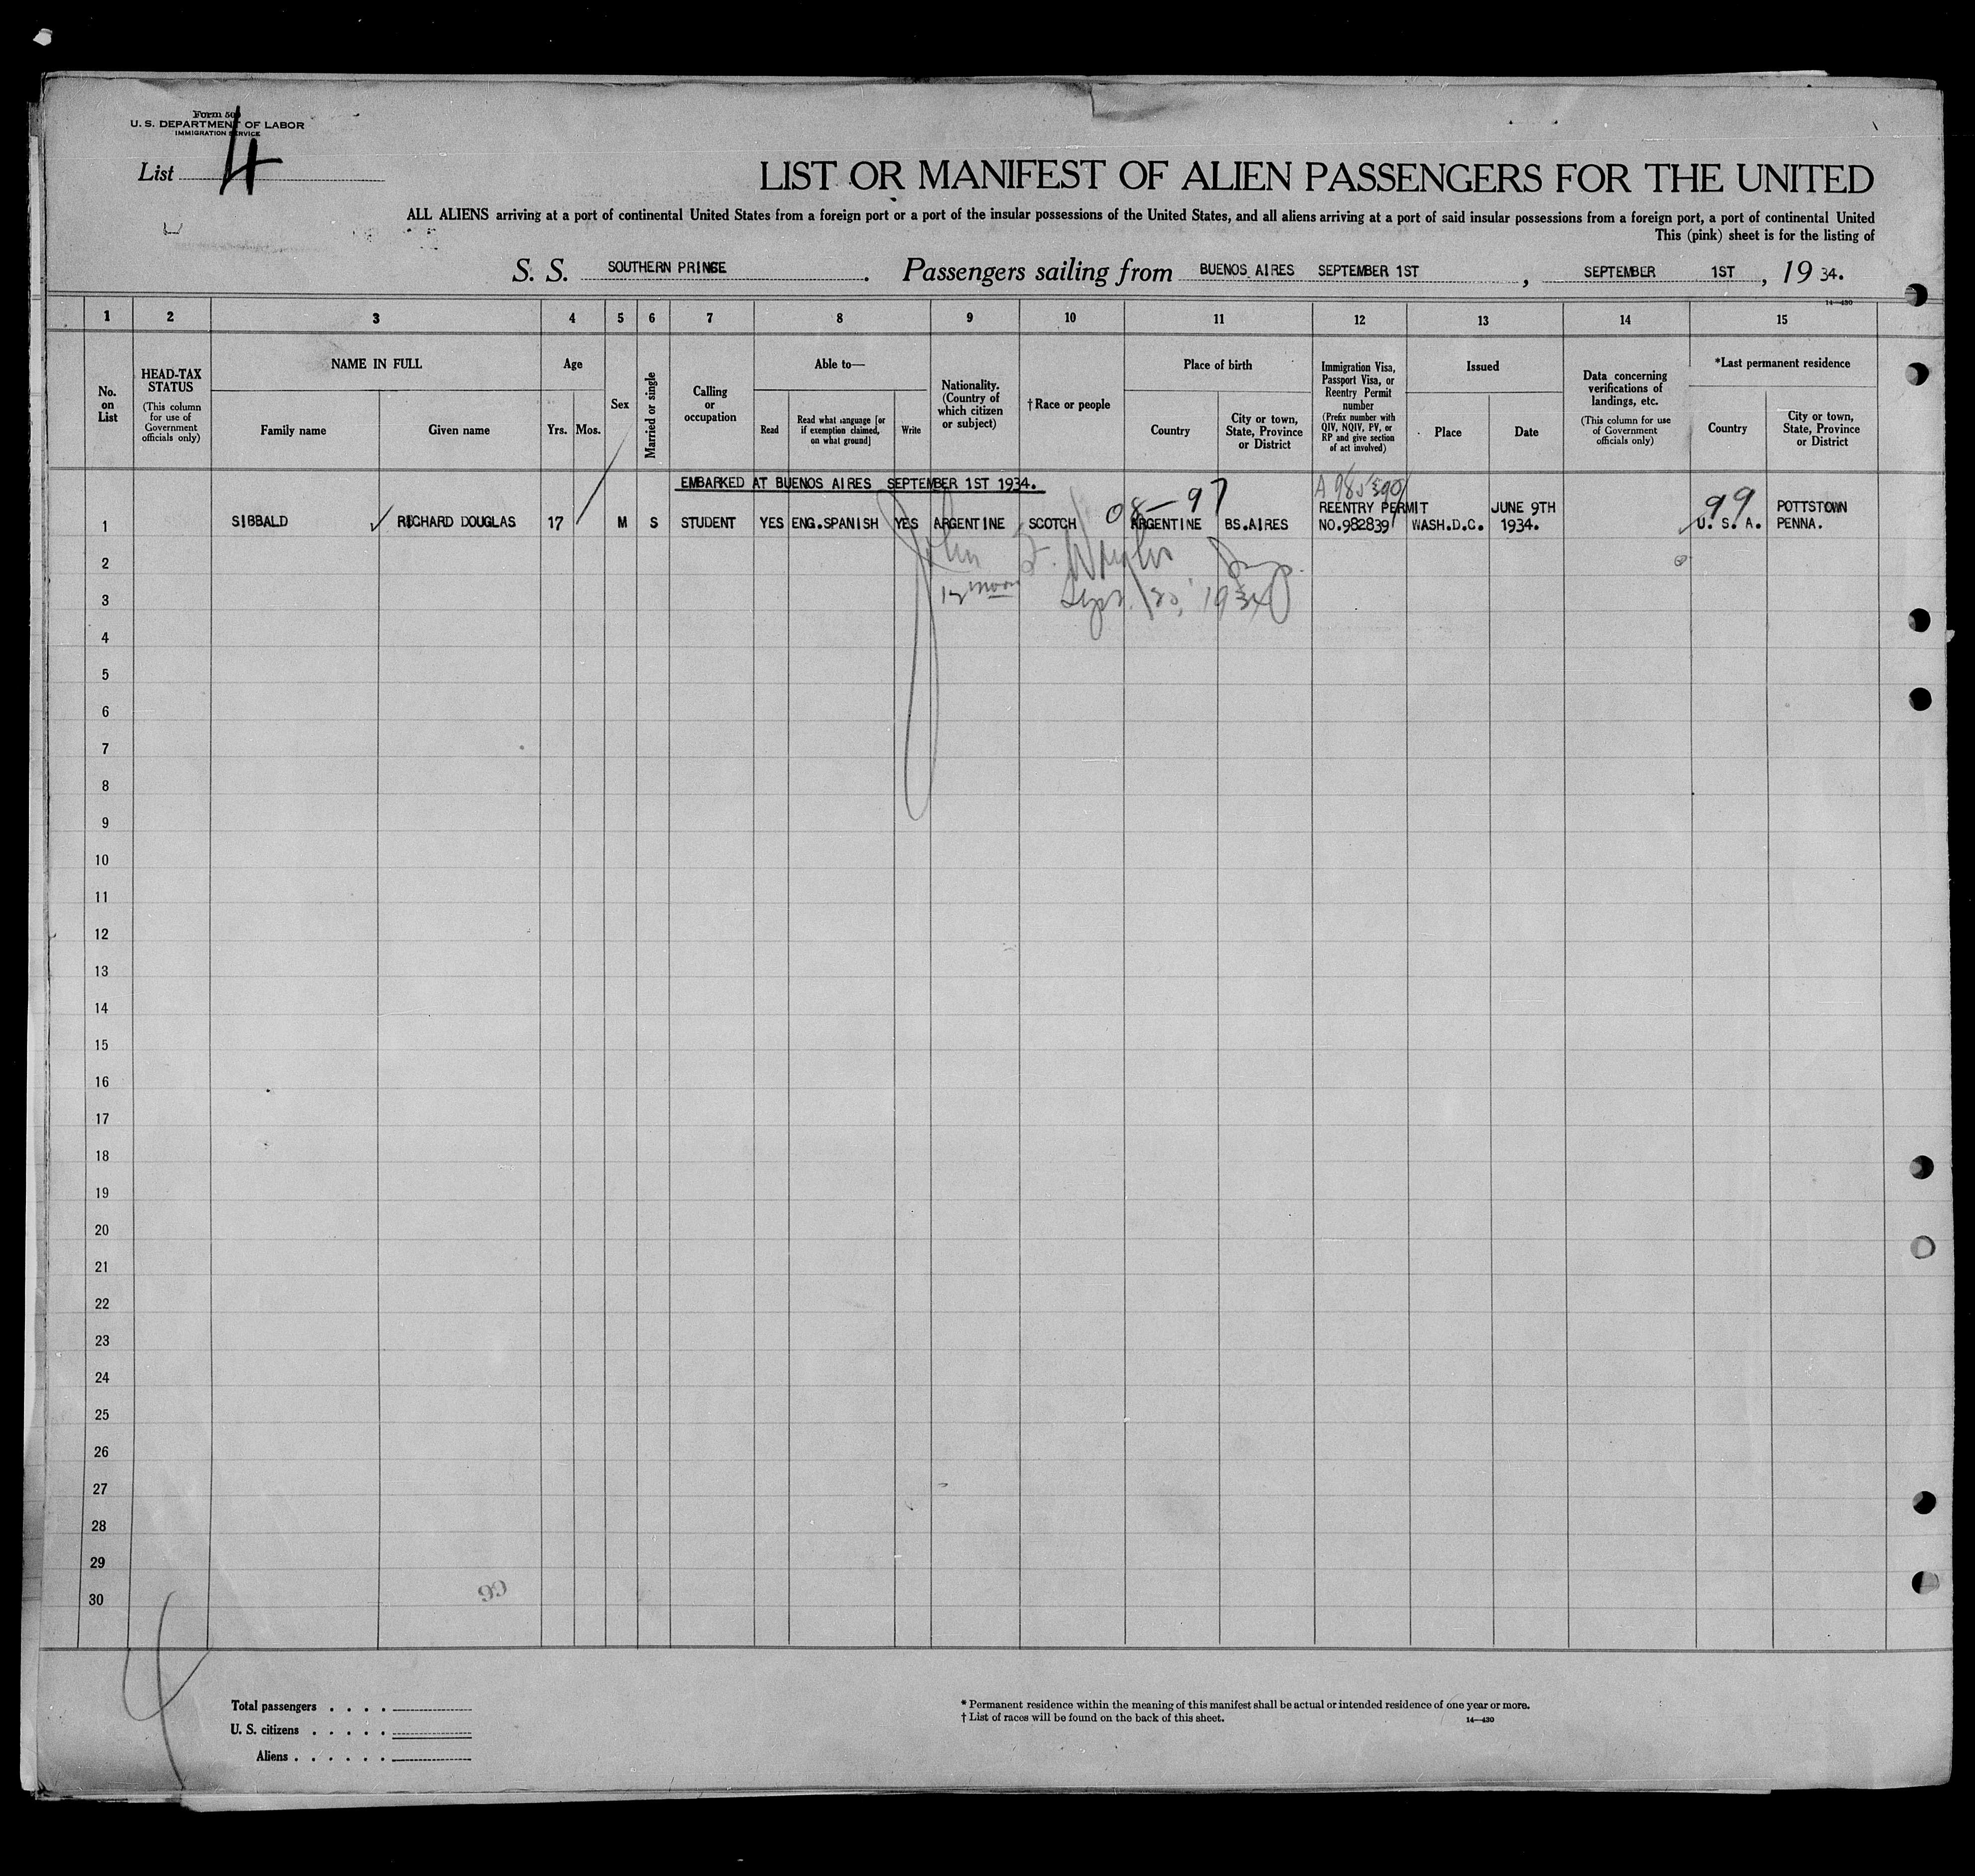 Form 500
U. S. DEPARTMENT OF LABOR
IMMIGRATION SERVICE
List 4
LIST OR MANIFEST OF ALIEN PASSENGERS FOR THE UNITED
ALL ALIENS arriving at a port of continental United States from a foreign port or a port of the insular possessions of the United States, and all aliens arriving at a port of said insular possessions from a foreign port, a port of continental United
This (pink) sheet is for the listing of
S. S. SOUTHERN PRINCE. Passengers sailing from BUENOS AIRES SEPTEMBER 1ST, SEPTEMBER 1ST, 19 34.
14—430
1 2 3 4 5 6 7 8 9 10 11 12 13 14 15
No. on List
HEAD-TAX STATUS
(This column for use of Government officials only)
NAME IN FULL
Family name
Given name
Age
Yrs.
Mos.
Sex
Married or single
Calling or occupation
Able to—
Read
Read what language [or if exemption claimed, on what ground]
Write
Nationality. (Country of which citizen or subject)
† Race or people
Place of birth
Country
City or town, State, Province or District
Immigration Visa, Passport Visa, or Reentry Permit number
(Prefix number with QIV, NQIV, PV, or RP and give section of act involved)
Issued
Place
Date
Data concerning verifications of landings, etc.
(This column for use of Government officials only)
*Last permanent residence
Country
City or town, State, Province or District
EMBARKED AT BUENOS AIRES SEPTEMBER 1ST 1934.
08-97
99
1 SIBBALD ✓ RICHARD DOUGLAS 17 M S STUDENT YES ENG.SPANISH YES ARGENTINE SCOTCH ARGENTINE BS.AIRES REENTRY PERMIT NO.982839 WASH.D.C. JUNE 9TH 1934. U. S. A. POTTSTOWN PENNA.
2 John
3 12 noon Sept. 1934
4
5
6
7
8
9
10
11
12
13
14
15
16
17
18
19
20
21
22
23
24
25
26
27
28
29
30
Total passengers . . . .
U. S. citizens . . . . .
Aliens . . . . . .
* Permanent residence within the meaning of this manifest shall be actual or intended residence of one year or more.
† List of races will be found on the back of this sheet.
14—430